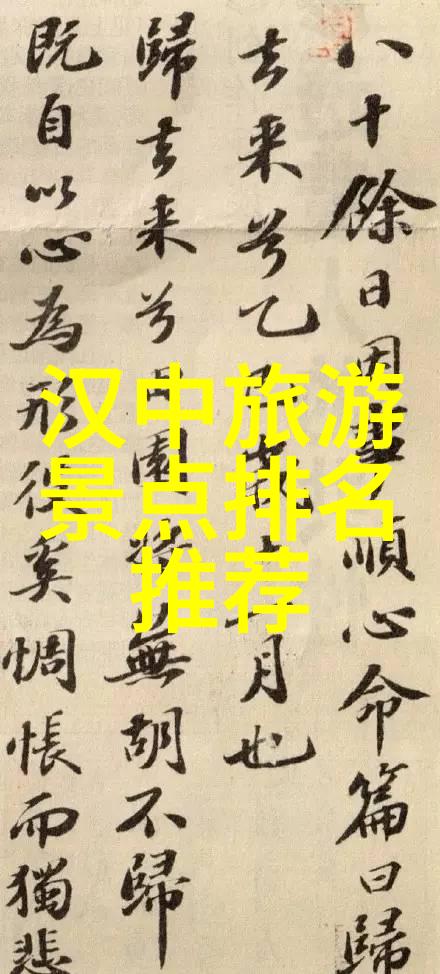 八十餘日因事順心命篇曰歸
去来兮乙巳歲十一月也
歸去来兮田園將蕪胡不歸
既自以心為形役奚惆悵而獨悲
汉中旅游
景点排名
推荐